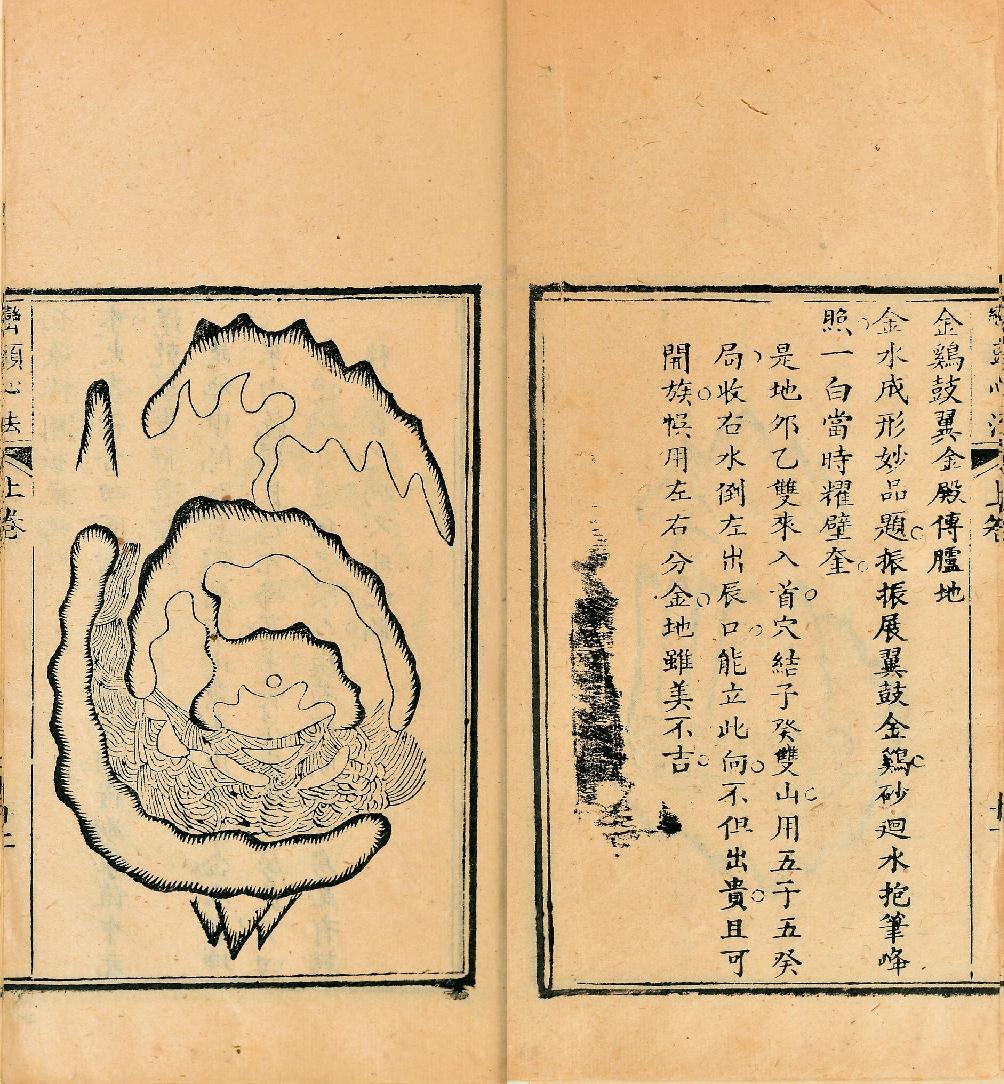 金鷄鼓翼金殿傳臚地
金水成形妙品題振振展翼鼓金鷄砂廻水抱筆峰
照一白當時耀壁奎
是地夘乙雙來入首穴結子癸雙山用五子五癸
局收右水倒左出辰口能立此向不但出貴且可
開族悞用左右分金地雖美不吉
巒頭心法 上卷